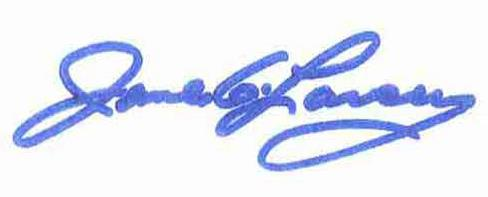 James C. Larsen